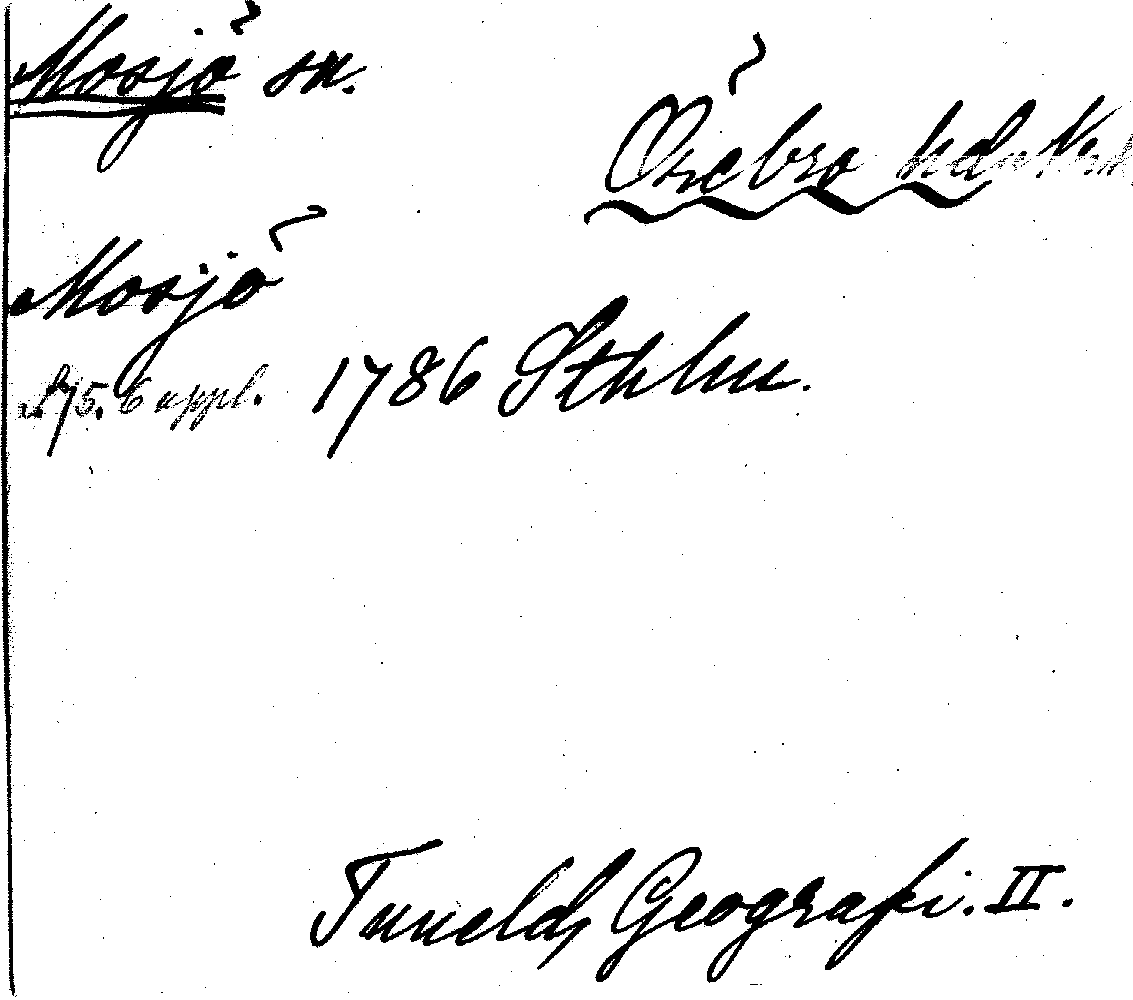 Mosjö sn.
Örebro hd
Mosjö
s. 75. 6 uppl. 1786 Sthlm.
Tunelds Geografi. II.